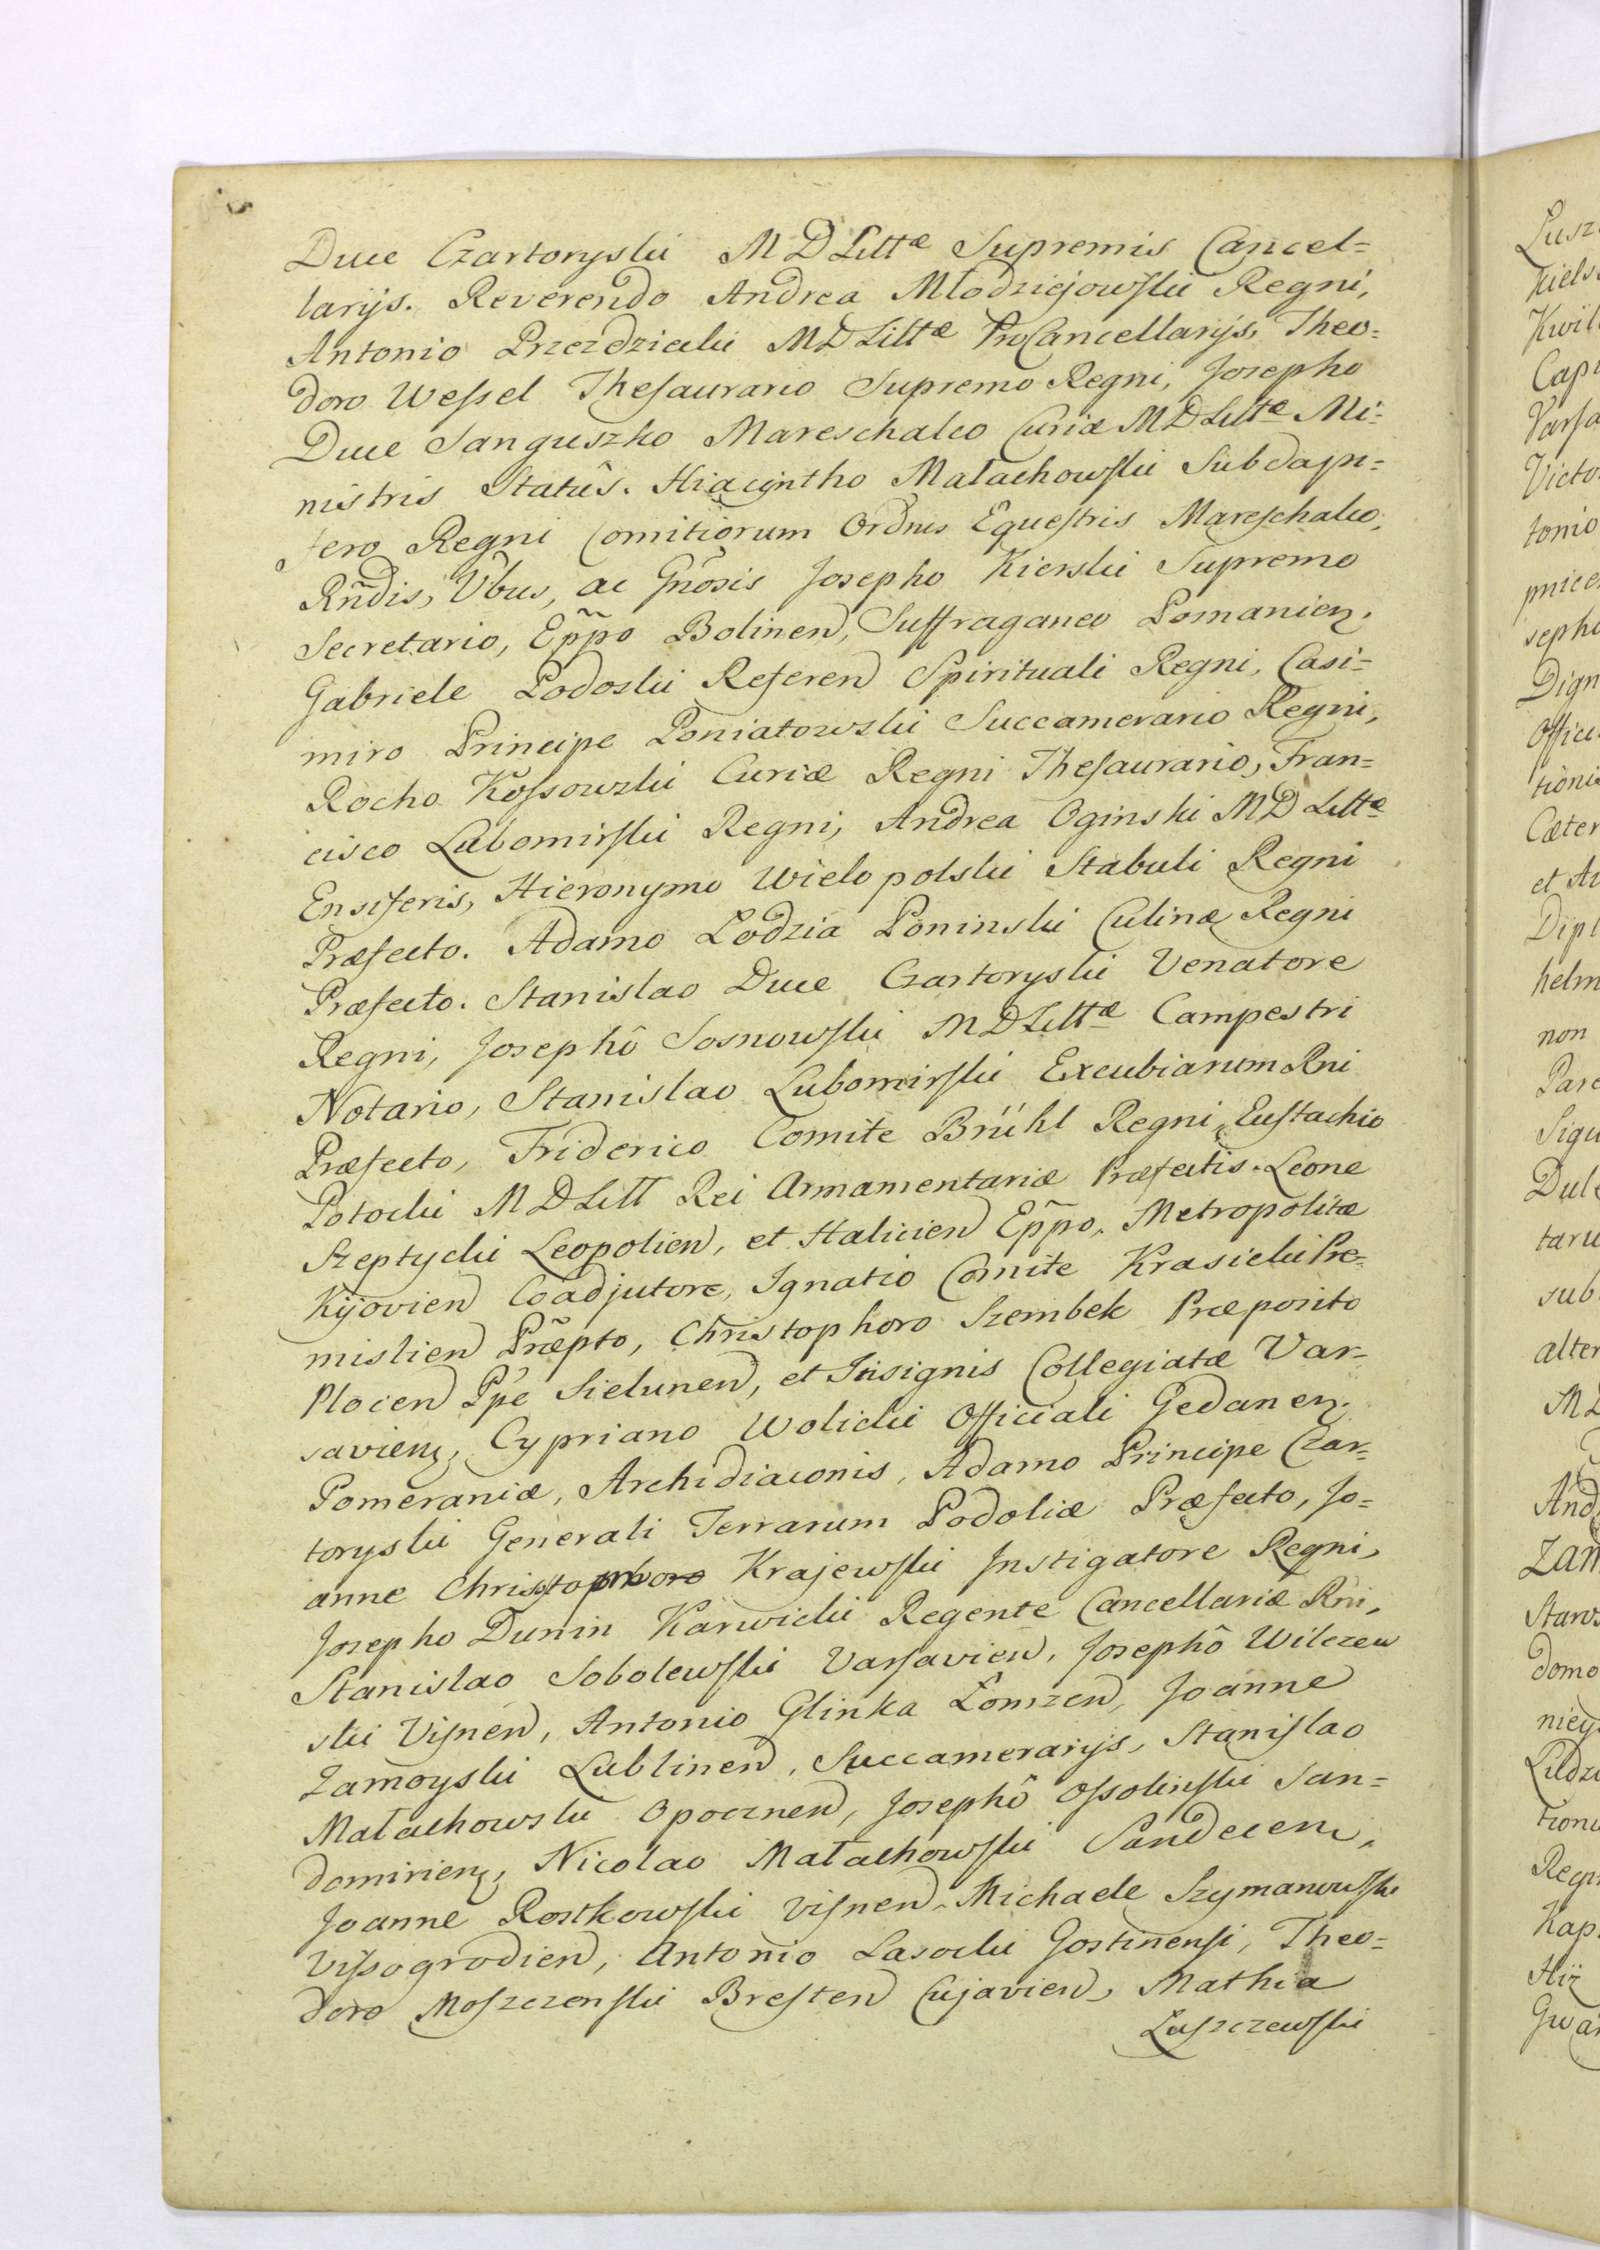 Duce Czartoryski M D Littæ Supremis Cancel=
larijs. Reverendo Andrea Młodziejowski Regni,
Antonio Przezdziecki MD Littæ ProCancellarijs, Theo=
doro Wessel Thesaurario Supremo Regni, Josepho
Duce Sanguszko Mareschalco Curiæ MD Littæ Mi=
nistris Statûs. Hiacijntho Małachowski Subdapi=
fero Regni Comitiorum Ordnis Equestris Mareschalco,
Rñdis, Vbus, ac Gñosis Josepho Kierski Supremo
Secretario, Eppõ Bolinen, Suffraganeo Posnanien.
Gabriele Podoski Referen Spirituali Regni, Casi=
miro Principe Poniatowski Succamerario Regni,
Rocho Kossowski Curiæ Regni Thesaurario, Fran=
cisco Lubomirski Regni, Andrea Oginski MD Littæ
Ensiferis, Hieronymo Wielopolski Stabuli Regni
Præfecto. Adamo Łodzia Poninski Culinæ Regni
Præfecto. Stanislao Duce Czartoryski Venatore
Regni, Josephô Sosnowski MD Littæ Campestri
Notario, Stanislao Lubomirski Excubiarum Rni
Præfecto, Friderico Comite Brühl Regni, Eustachio
Potocki M D Litt Rei Armamentariæ Præfectis. Leone
Szeptycki Leopolien, et Halicien Eppõ, Metropolitæ
Kijovien Coadjutore, Ignatio Comite Krasicki Pre=
mislien Præpto, Christophoro Szembek Præposito
Plocen Ppe Sielunen, et Insignis Collegiatæ Var=
savien, Cypriano Wolicki Officiali Gedanen.
Pomeraniæ, Archidiaconis, Adamo Principe Czar=
toryski Generali Terrarum Podoliæ Præfecto, Jo=
anne Christophoro Krajewski Instigatore Regni,
Josepho Dunin Karwicki Regente Cancellariæ Rni,
Stanislao Sobolewski Varsavien, Josephô Wilczew
ski Visnen, Antonio Glinka Łomzen, Joanne
Zamoyski Lublinen, Succamerarijs, Stanislao
Małachowski Opocznen, Josephô Ossolinski San=
domirien, Nicolao Małachowski Sandecen,
Joanne Rostkowski Visnen, Michaele Szymanowski
Vissogrodien, Antonio Lasocki Gostinensi, Theo=
doro Moszczenski Bresten Cujavien, Mathia
Luszczewski